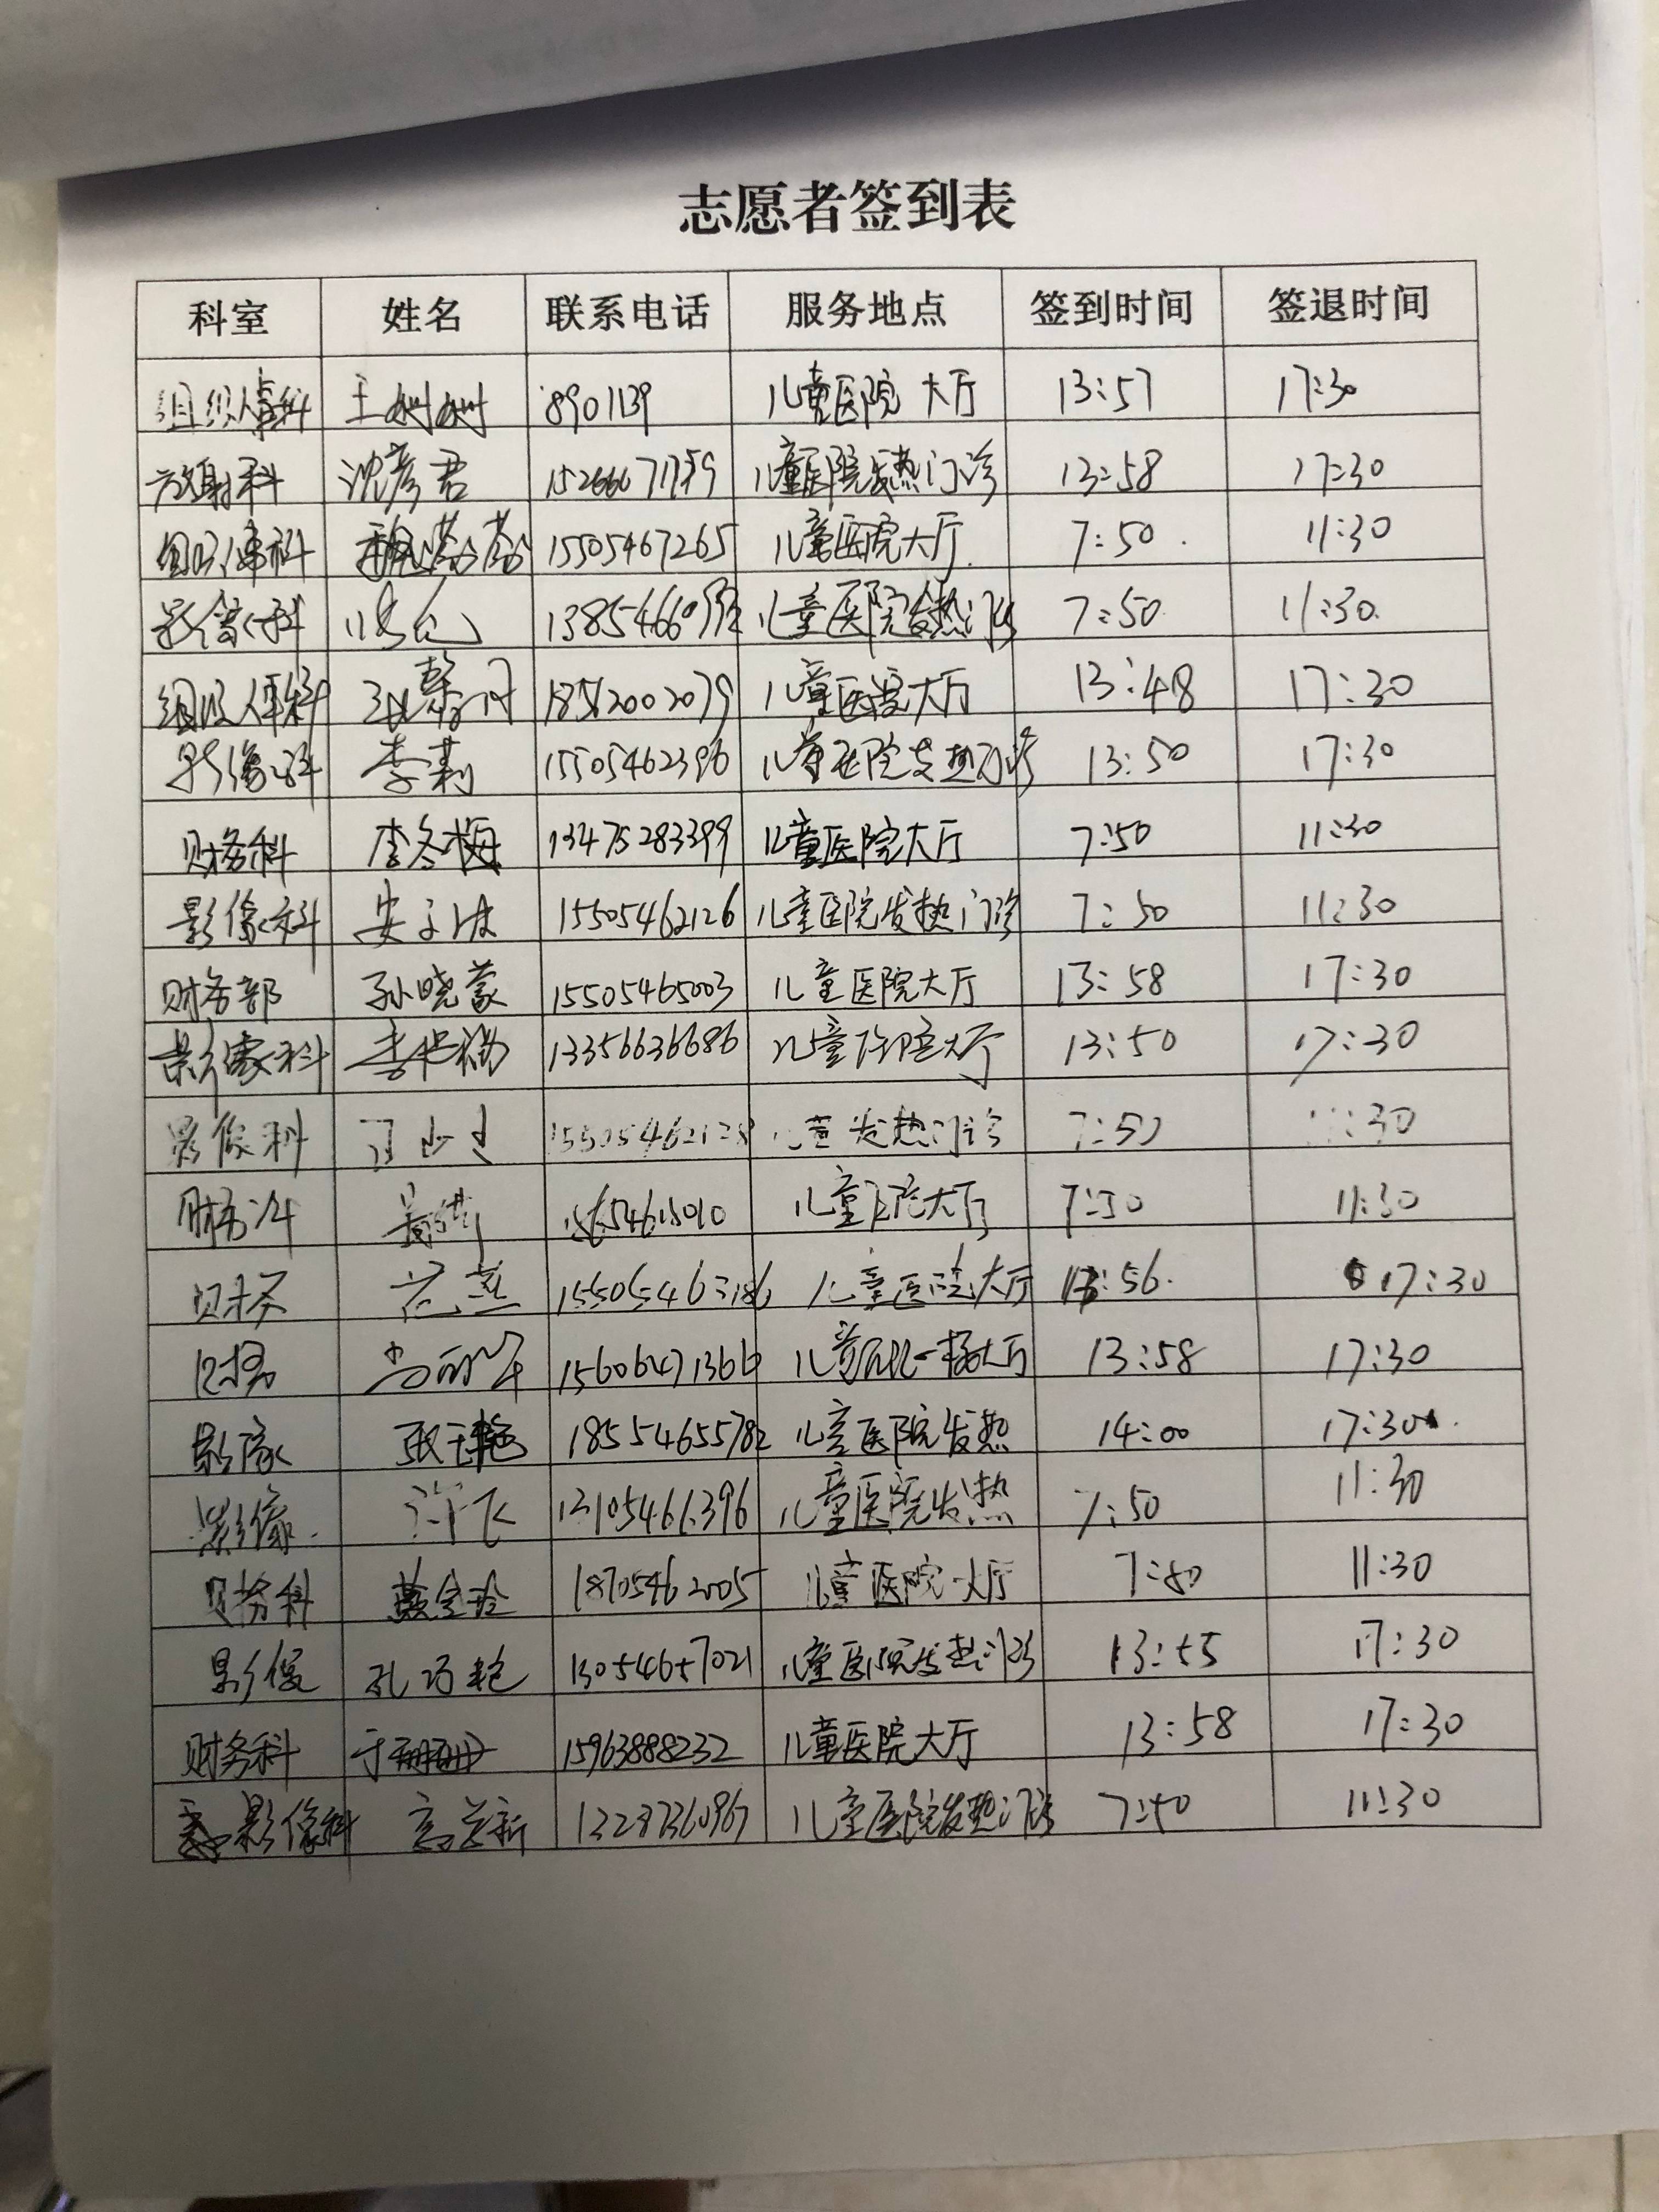 志愿者签到表
科室 姓名 联系电话 服务地点 签到时间 签退时间
组织人事科 王姗姗 8901139 儿童医院 大厅 13:57 17:30
放射科 沈彦君 儿童医院发热门诊 13:58 17:30
组织人事科 15505467265 儿童医院大厅 7:50 11:30
影像科 儿童医院发热门诊 7:50 11:30
组织人事科 儿童医院大厅 13:48 17:30
影像科 李莉 15505462396 儿童医院发热门诊 13:50 17:30
财务科 李冬梅 13475283399 儿童医院大厅 7:50 11:30
影像科 15505462126 儿童医院发热门诊 7:50 11:30
财务部 孙晓蒙 15505465003 儿童医院大厅 13:58 17:30
影像科 13356636686 儿童医院大厅 13:50 17:30
影像科 15505462128 儿童发热门诊 7:50 11:30
财务科 儿童医院大厅 7:50 11:30
财务 范燕 15505463186 儿童医院大厅 13:56 17:30
财务 15606471366 大厅 13:58 17:30
影像 张玉艳 18554655782 儿童医院发热 14:00 17:30
影像 许飞 儿童医院发热 7:50 11:30
财务科 18705462005 儿童医院大厅 7:50 11:30
影像 孔巧艳 13054657021 儿童医院发热门诊 13:55 17:30
财务科 于珊珊 15963888232 儿童医院大厅 13:58 17:30
影像科 13287360967 儿童医院发热门诊 7:50 11:30